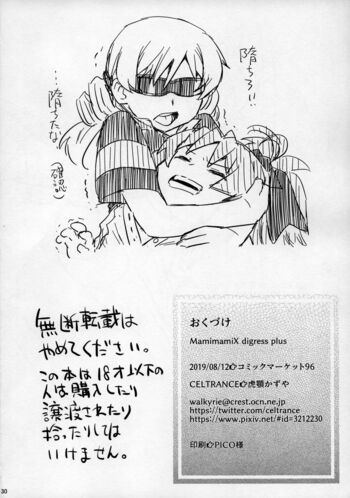 堕ちろい
…堕ちたな…
(確認)
無断転載は
やめてください。
この本は18才以下の
人は購入したり
譲渡されたり
拾ったりしては
いけません。
おくづけ
MamimamiX digress plus
2019/08/12 コミックマーケット96
CELTRANCE 虎顎かずや
walkyrie@crest.ocn.ne.jp
https://twitter.com/celtrance
https://www.pixiv.net/#id=3212230
印刷 PICO様
30